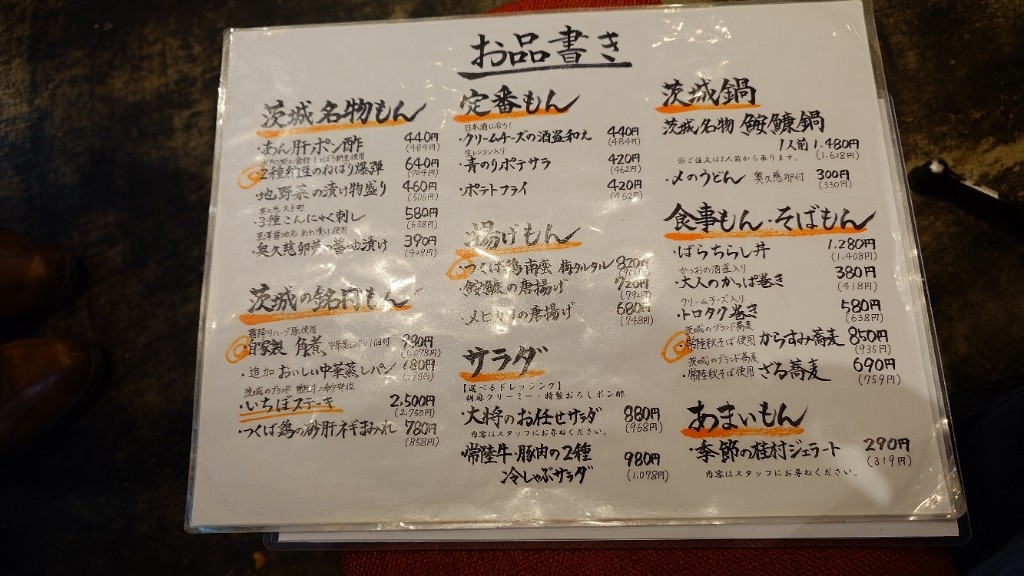 お品書き
茨城名物もん
・あん肝ポン酢 440円
(484円)
・2種納豆のねばり爆弾 640円
(704円)
地野菜の漬け物盛り 460円
(506円)
・3種こんにゃく刺し 580円
(638円)
・奥久慈卵黄の醤油漬け 390円
(429円)
茨城の銘柄もん
霜降りハーブ豚使用
・自家製 角煮、中華蒸しパン1個付 980円
(1.078円)
・追加 おいしい中華蒸しパン 180円
茨城のブランド
・いちぼステーキ 2.500円
(2.750円)
・つくば鶏の砂肝ネギまみれ 780円
(858円)
定番もん
日本酒に合う!
・クリームチーズの酒盗和え 440円
(484円)
・青のりポテサラ 420円
(462円)
・ポテトフライ 420円
(462円)
揚げもん
・つくば鶏南蛮 梅タルタル 820円
・鮟鱇の唐揚げ 720円
(792円)
・メヒカリの唐揚げ 680円
(748円)
サラダ
【選べるドレッシング】
胡麻クリーミー・特製おろしポン酢
・大将のお任せサラダ 880円
内容はスタッフにお尋ねください。 (968円)
・常陸牛・豚肉の2種
冷しゃぶサラダ 980円
(1.078円)
茨城鍋
茨城名物 鮟鱇鍋
1人前 1.480円
※ご注文は2人前から承ります。 (1.628円)
・〆のうどん 奥久慈卵付 300円
(330円)
食事もん・そばもん
・ばらちらし丼 1.280円
(1.408円)
かつおの酒盗入り
・大人のかっぱ巻き 380円
(418円)
クリームチーズ入り
・トロタク巻き 580円
(638円)
茨城のブランド蕎麦
・常陸秋そば使用 からすみ蕎麦 850円
(935円)
茨城のブランド蕎麦
・常陸秋そば使用 ざる蕎麦 690円
(759円)
あまいもん
・季節の桂村ジェラート 290円
内容はスタッフにお尋ねください。 (319円)